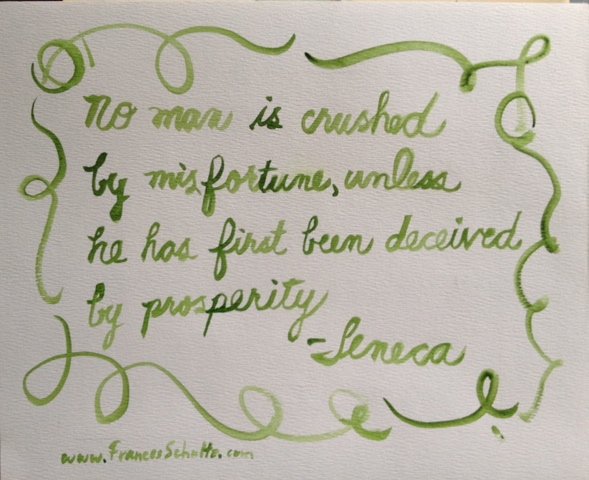 No man is crushed
by misfortune, unless
he has first been deceived
by prosperity
-Seneca
www.FrancesSchultz.com